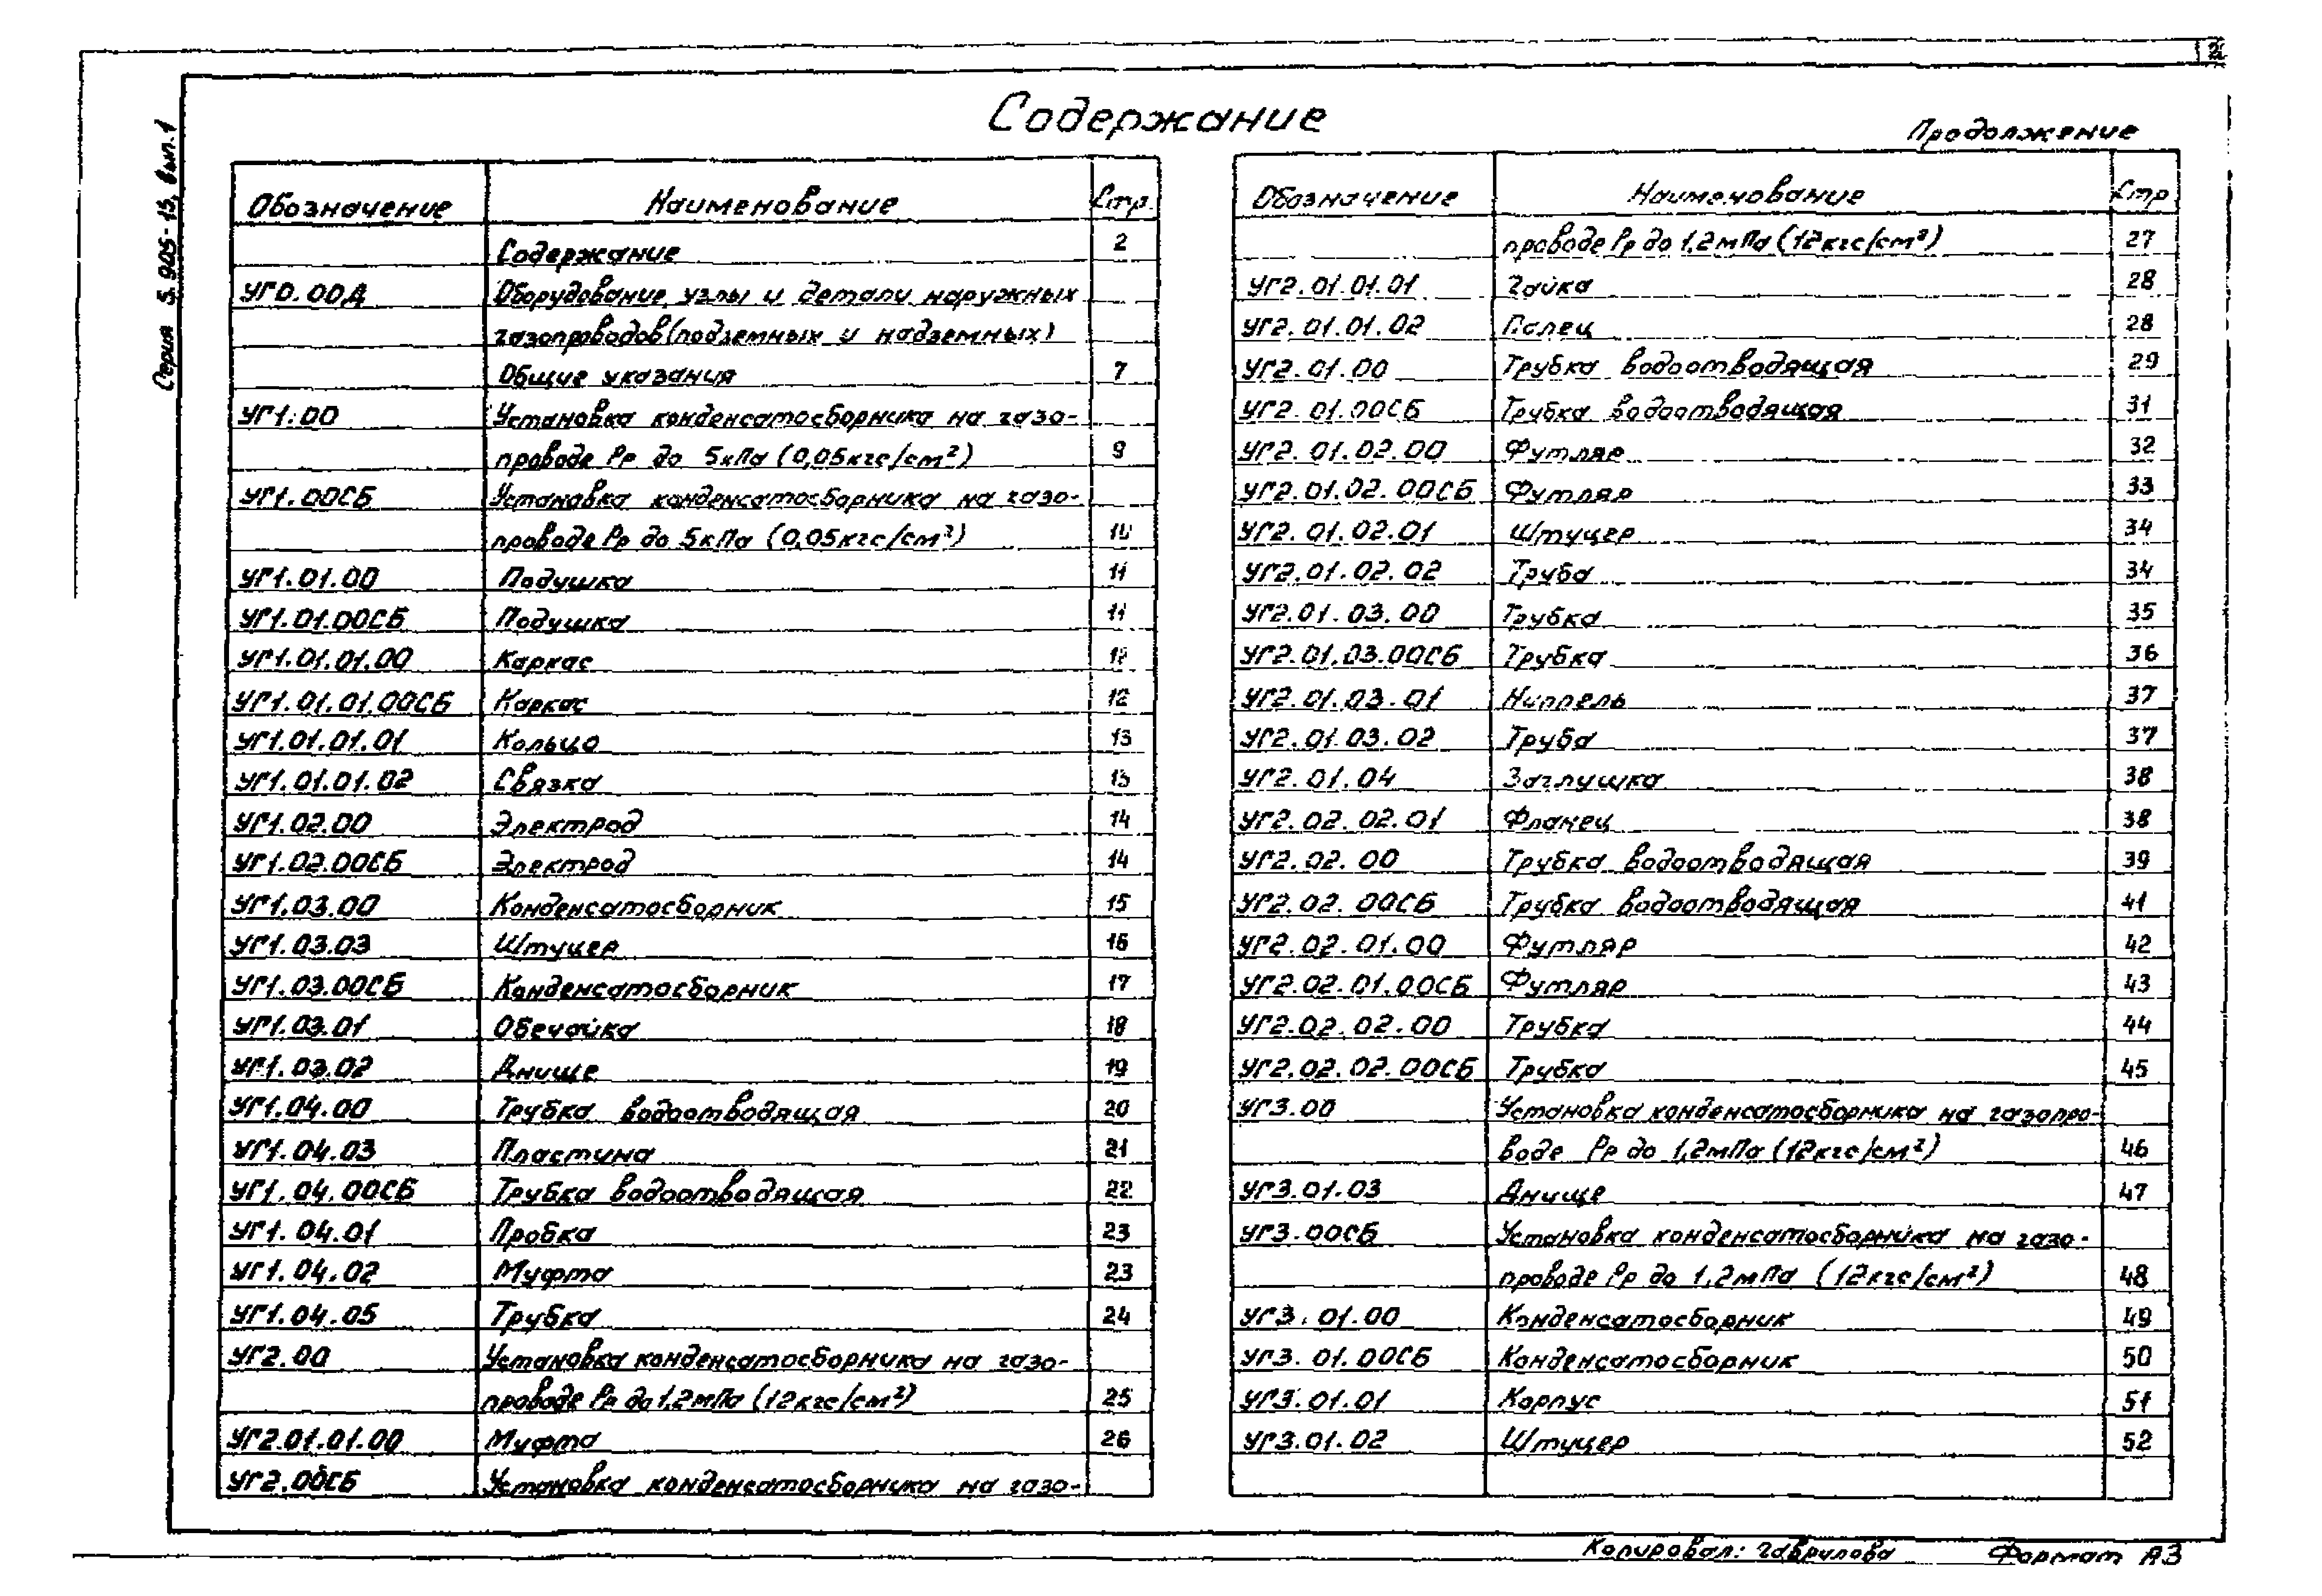 2
Серия 5.905-15, вып.1
Содержание
Обозначение Наименование Стр.
Содержание 2
УГ0.00Д Оборудование, узлы и детали наружных
газопроводов (подземных и надземных)
Общие указания 7
УГ1.00 Установка конденсатосборника на газо-
проводе Рр до 5кПа (0,05кгс/см²) 9
УГ1.00СБ Установка конденсатосборника на газо-
проводе Рр до 5кПа (0,05кгс/см²) 10
УГ1.01.00 Подушка 11
УГ1.01.00СБ Подушка 11
УГ1.01.01.00 Каркас 12
УГ1.01.01.00СБ Каркас 12
УГ1.01.01.01 Кольцо 13
УГ1.01.01.02 Связка 13
УГ1.02.00 Электрод 14
УГ1.02.00СБ Электрод 14
УГ1.03.00 Конденсатосборник 15
УГ1.03.03 Штуцер 16
УГ1.03.00СБ Конденсатосборник 17
УГ1.03.01 Обечайка 18
УГ1.03.02 Днище 19
УГ1.04.00 Трубка водоотводящая 20
УГ1.04.03 Пластина 21
УГ1.04.00СБ Трубка водоотводящая 22
УГ1.04.01 Пробка 23
УГ1.04.02 Муфта 23
УГ1.04.05 Трубка 24
УГ2.00 Установка конденсатосборника на газо-
проводе Рр до 1,2мПа (12кгс/см²) 25
УГ2.01.01.00 Муфта 26
УГ2.00СБ Установка конденсатосборника на газо-
Продолжение
Обозначение Наименование Стр
проводе Рр до 1,2мПа (12кгс/см²) 27
УГ2.01.01.01 Гайка 28
УГ2.01.01.02 Палец 28
УГ2.01.00 Трубка водоотводящая 29
УГ2.01.00СБ Трубка водоотводящая 31
УГ2.01.02.00 Футляр 32
УГ2.01.02.00СБ Футляр 33
УГ2.01.02.01 Штуцер 34
УГ2.01.02.02 Труба 34
УГ2.01.03.00 Трубка 35
УГ2.01.03.00СБ Трубка 36
УГ2.01.03.01 Ниппель 37
УГ2.01.03.02 Труба 37
УГ2.01.04 Заглушка 38
УГ2.02.02.01 Фланец 38
УГ2.02.00 Трубка водоотводящая 39
УГ2.02.00СБ Трубка водоотводящая 41
УГ2.02.01.00 Футляр 42
УГ2.02.01.00СБ Футляр 43
УГ2.02.02.00 Трубка 44
УГ2.02.02.00СБ Трубка 45
УГ3.00 Установка конденсатосборника на газопро-
воде Рр до 1,2мПа (12кгс/см²) 46
УГ3.01.03 Днище 47
УГ3.00СБ Установка конденсатосборника на газо-
проводе Рр до 1,2мПа (12кгс/см²) 48
УГ3.01.00 Конденсатосборник 49
УГ3.01.00СБ Конденсатосборник 50
УГ3.01.01 Корпус 51
УГ3.01.02 Штуцер 52
Копировал: Гаврилова Формат А3